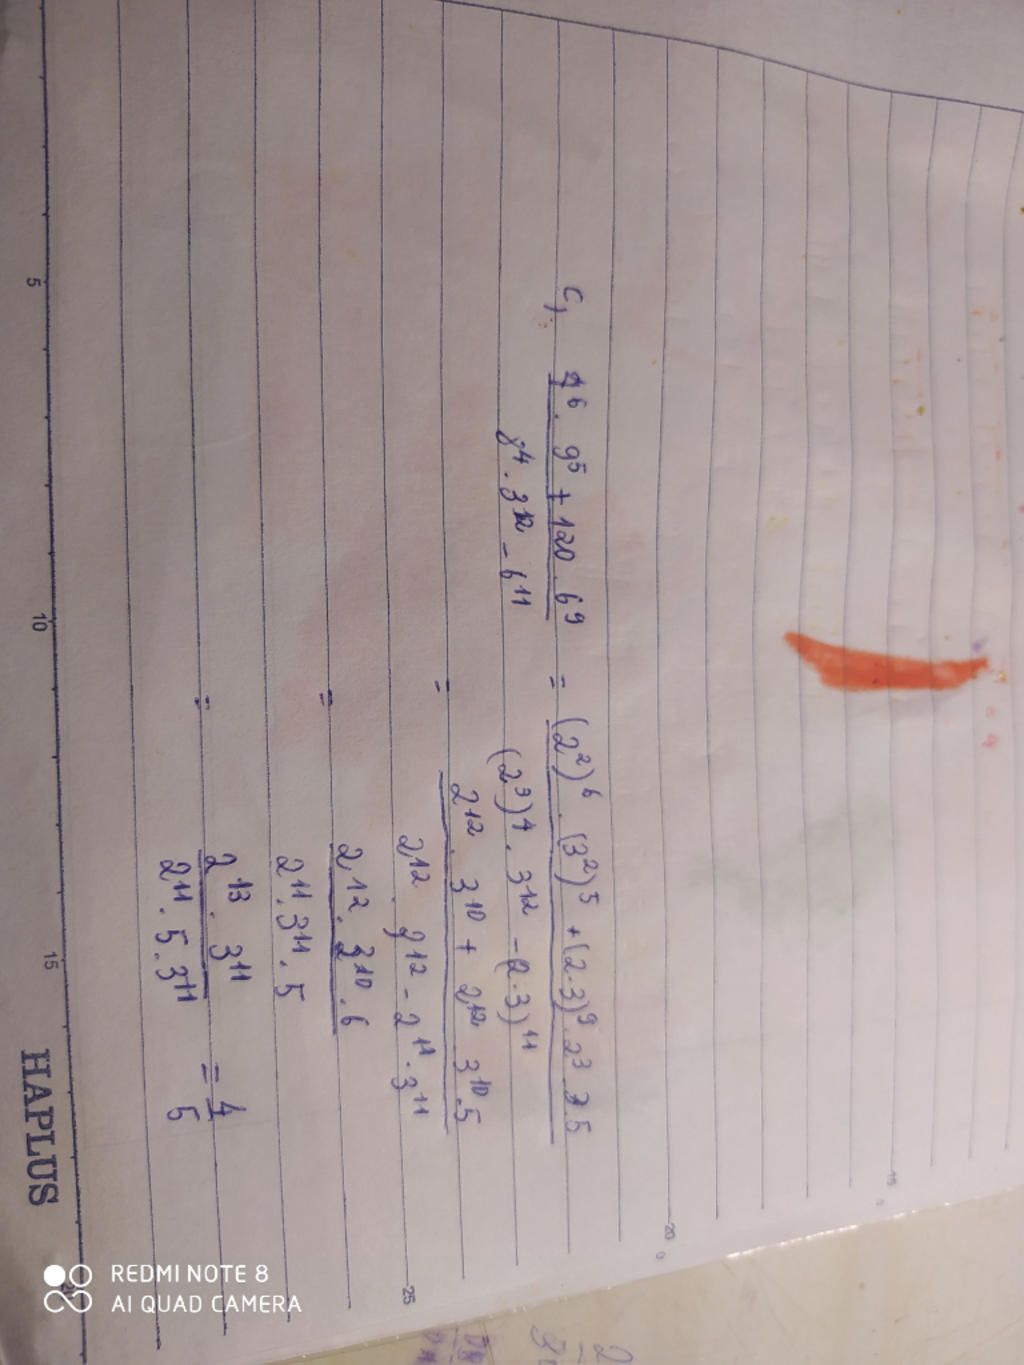 c, 4⁶ . 9⁵ + 120 . 6⁹ = (2²)⁶ . (3²)⁵ + (2.3)⁹ . 2³ . 3 . 5
8⁴ . 3¹² - 6¹¹ (2³)⁴ . 3¹² - (2.3)¹¹
= 2¹² . 3¹⁰ + 2¹² 3¹⁰ . 5
2¹² . 3¹² - 2¹¹ . 3¹¹
= 2¹² . 3¹⁰ . 6
2¹¹ . 3¹¹ . 5
= 2¹³ . 3¹¹ = 4
2¹¹ . 5 . 3¹¹ 5
5 10 15
HAPLUS
20
25
REDMI NOTE 8
AI QUAD CAMERA